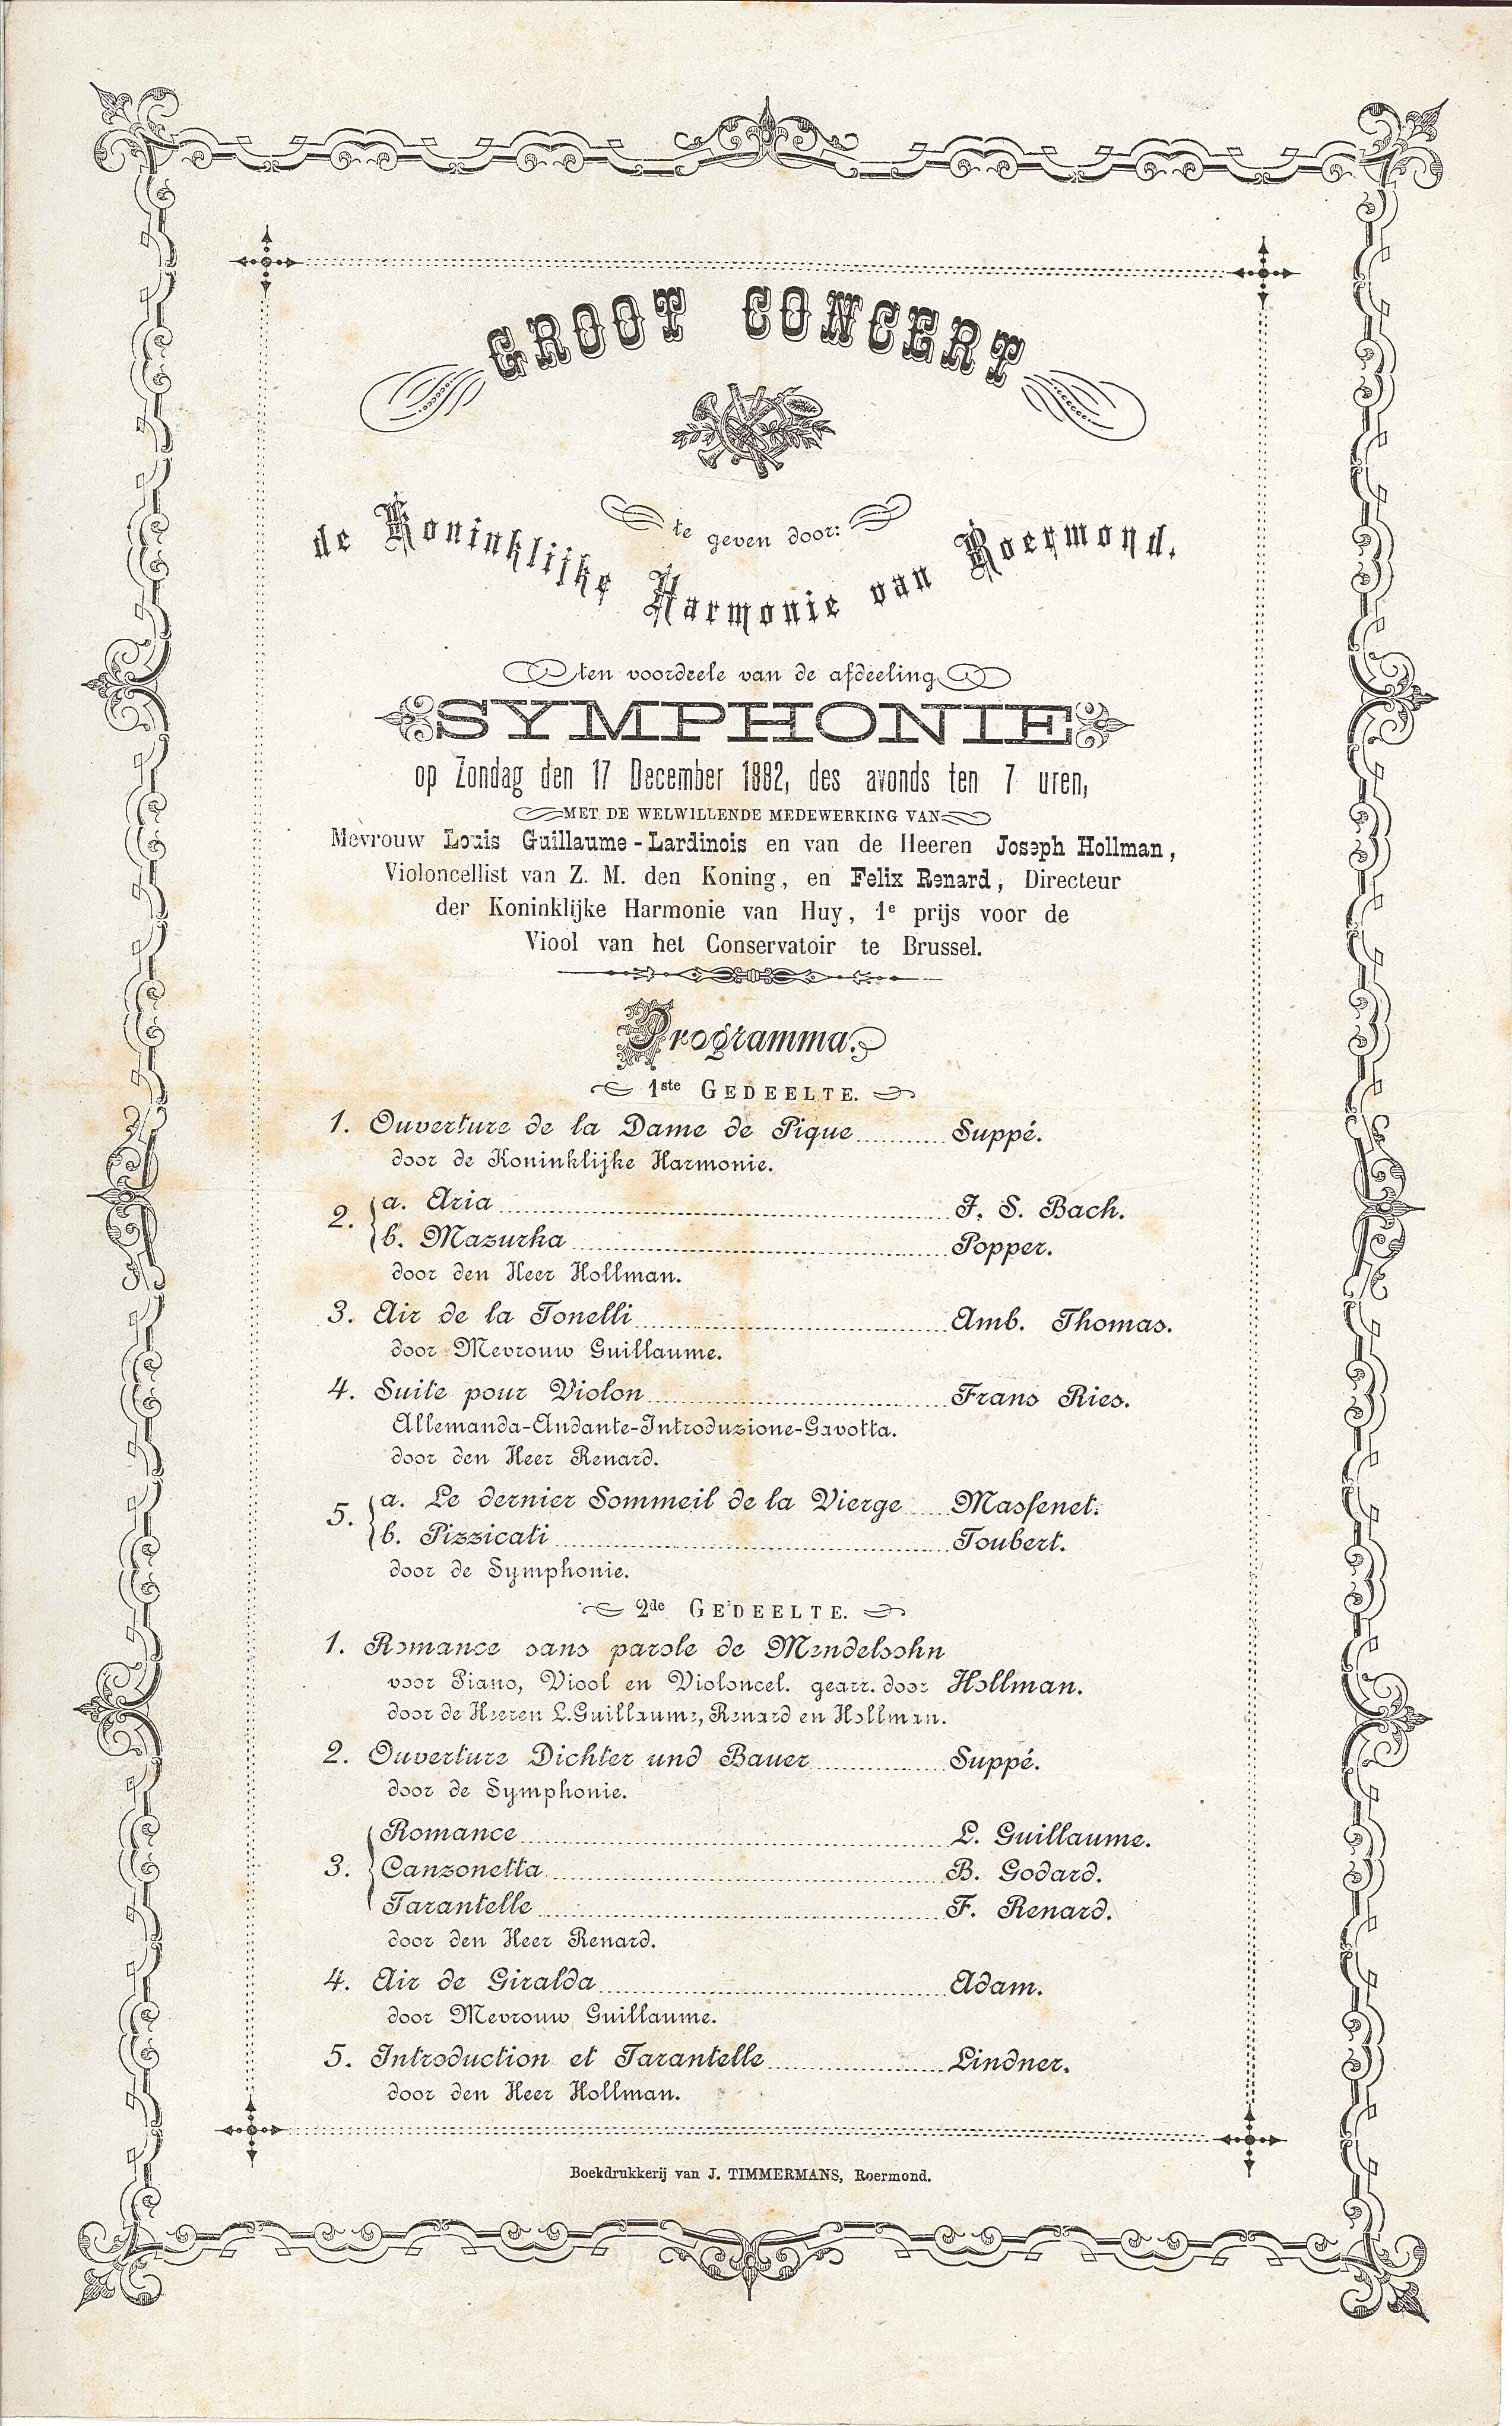 GROOT CONCERT
te geven door:
de Koninklijke Harmonie van Roermond.
ten voordeele van de afdeeling
SYMPHONIE
op Zondag den 17 December 1882, des avonds ten 7 uren,
MET DE WELWILLENDE MEDEWERKING VAN
Mevrouw Louis Guillaume-Lardinois en van de Heeren Joseph Hollman,
Violoncellist van Z. M. den Koning, en Felix Renard, Directeur
der Koninklijke Harmonie van Huy, 1e prijs voor de
Viool van het Conservatoir te Brussel.
Programma.
1ste GEDEELTE.
1. Ouverture de la Dame de Pique.......... Suppé.
door de Koninklijke Harmonie.
2. a. Aria .......... J. S. Bach.
b. Mazurka .......... Popper.
door den Heer Hollman.
3. Air de la Tonelli .......... Amb. Thomas.
door Mevrouw Guillaume.
4. Suite pour Violon .......... Frans Ries.
Allemanda-Andante-Introduzione-Gavotta.
door den Heer Renard.
5. a. Le dernier Sommeil de la Vierge ..... Massenet.
b. Pizzicati .......... Toubert.
door de Symphonie.
2de GEDEELTE.
1. Romance sans parole de Mendelsohn
voor Piano, Viool en Violoncel. gearr. door Hollman.
door de Heeren L. Guillaume, Renard en Hollman.
2. Ouverture Dichter und Bauer .......... Suppé.
door de Symphonie.
3. Romance .......... L. Guillaume.
Canzonetta .......... B. Godard.
Tarantelle .......... F. Renard.
door den Heer Renard.
4. Air de Giralda .......... Adam.
door Mevrouw Guillaume.
5. Introduction et Tarantelle .......... Lindner.
door den Heer Hollman.
Boekdrukkerij van J. TIMMERMANS, Roermond.